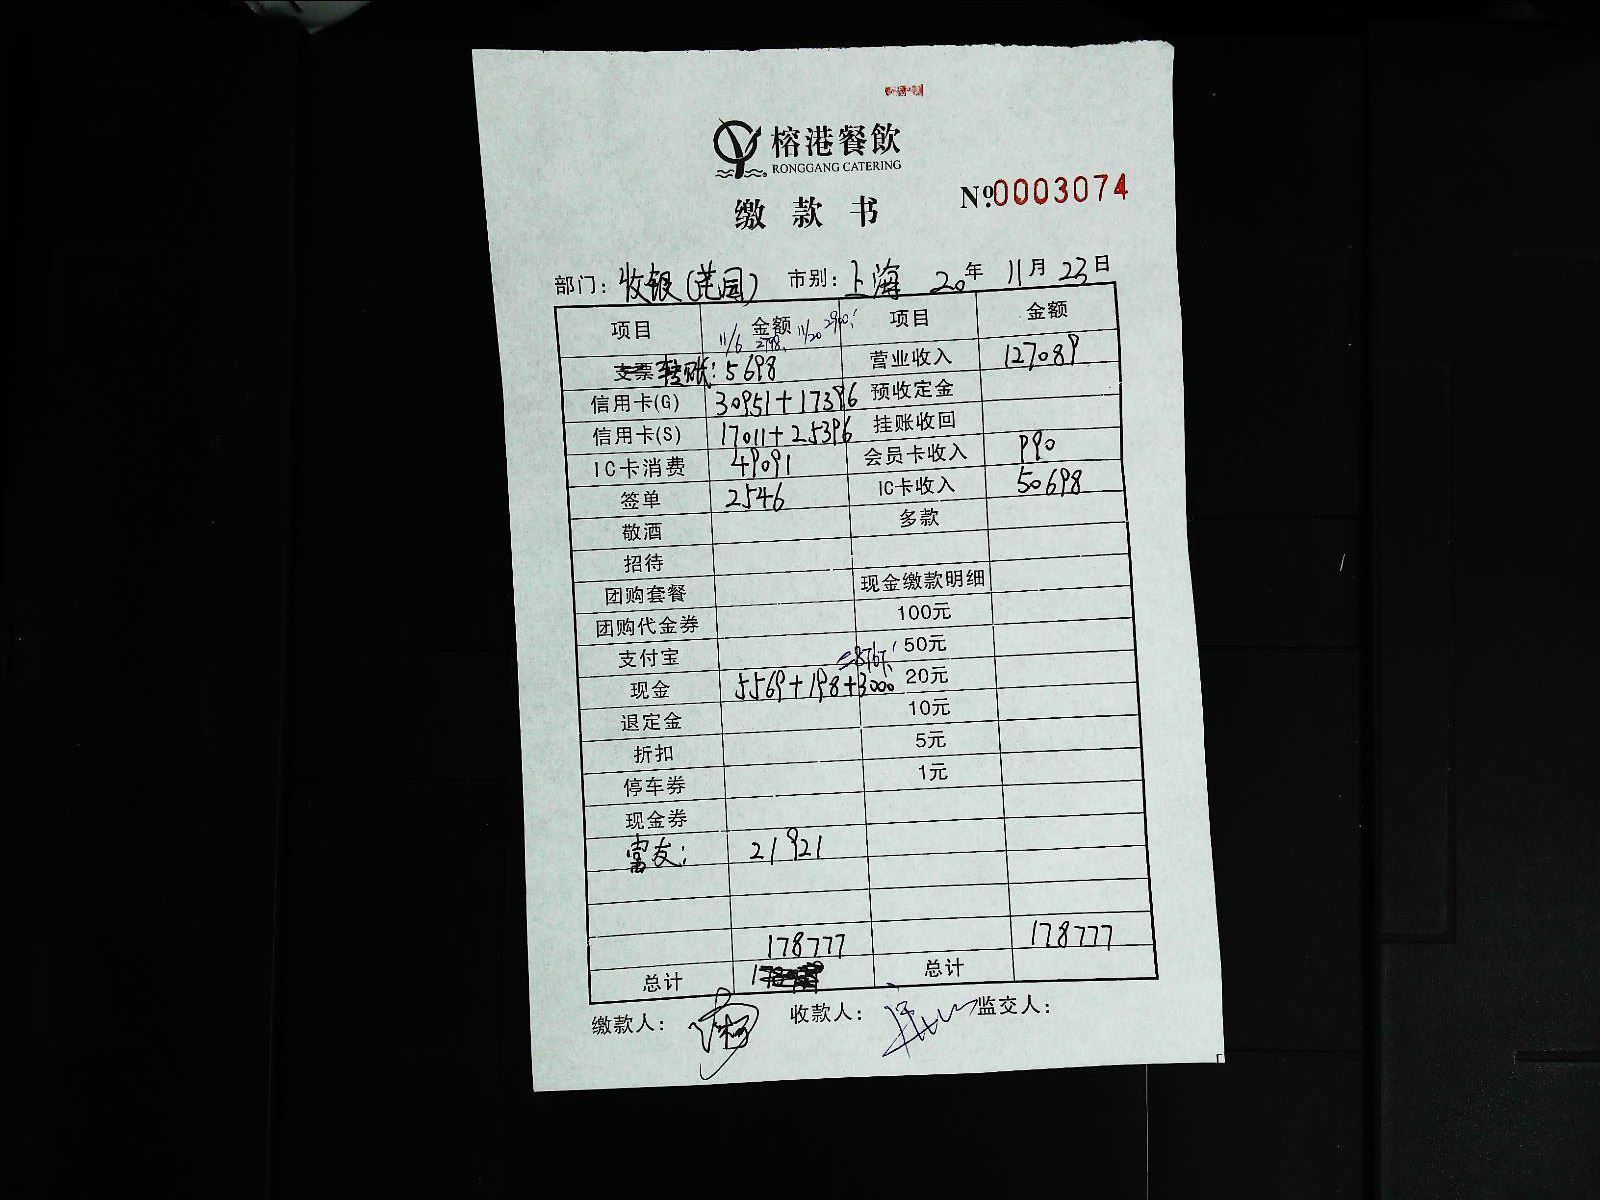 榕港餐飲
RONGGANG CATERING
№0003074
缴款书
部门：收银(芘园) 市别：上海 20年 11月 23日
项目 金额 项目 金额
11/6 2798、 11/20 2900！
支票转账：5698 营业收入 127089
信用卡(G) 30951+17396 预收定金
信用卡(S) 17011+25396 挂账收回
IC卡消费 49091 会员卡收入 990
签单 2546 IC卡收入 50698
敬酒 多款
招待
团购套餐 现金缴款明细
团购代金券 100元
支付宝 50元
=8767、
现金 5569+198+3000 20元
退定金 10元
折扣 5元
停车券 1元
现金券
富友： 21921
178777 178777
总计 总计
缴款人： 收款人： 监交人：